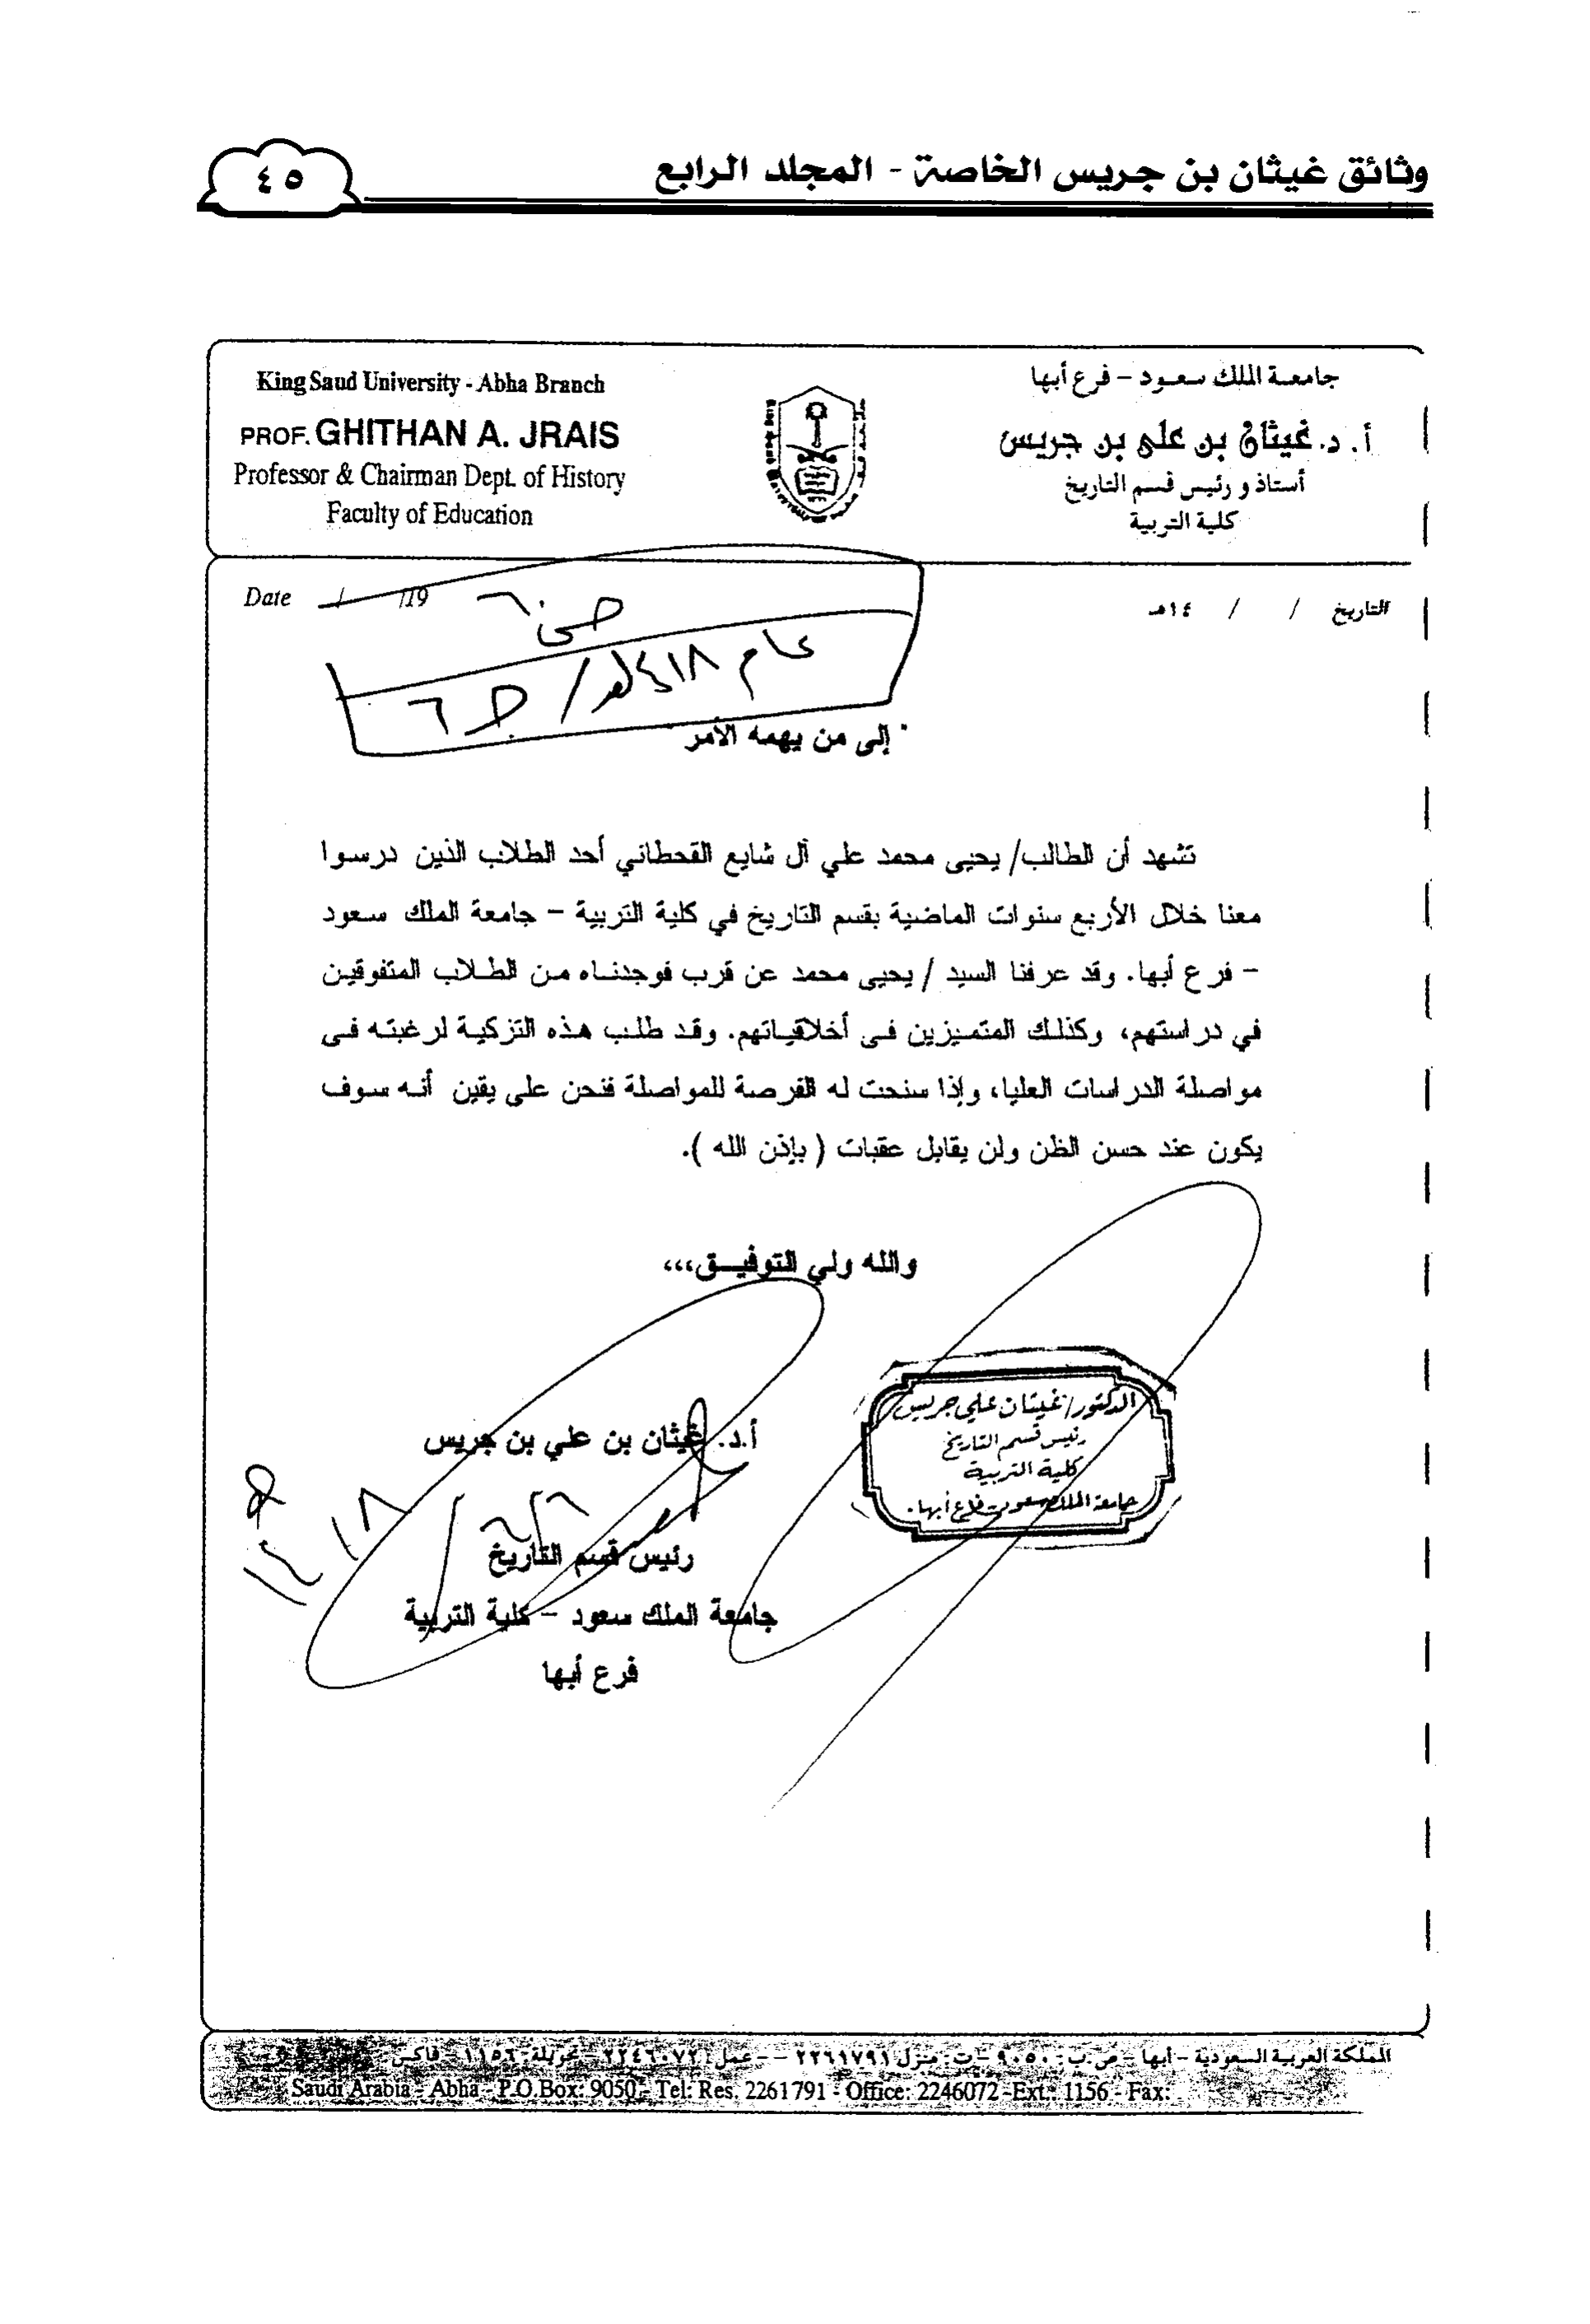 وثائق غيثان بن جريس الخاصة - المجلد الرابع
٤٥
جامعة الملك سعود - فرع أبها
أ. د. غيثان بن علي بن جريس
أستاذ و رئيس قسم التاريخ
كلية التربية
King Saud University - Abha Branch
PROF. GHITHAN A. JRAIS
Professor & Chairman Dept. of History
Faculty of Education
التاريخ / / ١٤هـ
Date / /19
عام ١٤١٨هـ / ج٦
إلى من يهمه الأمر
نشهد أن الطالب/ يحيى محمد علي آل شايع القحطاني أحد الطلاب الذين درسوا
معنا خلال الأربع سنوات الماضية بقسم التاريخ في كلية التربية - جامعة الملك سعود
- فرع أبها. وقد عرفنا السيد / يحيى محمد عن قرب فوجدناه من الطلاب المتفوقين
في دراستهم، وكذلك المتميزين فى أخلاقياتهم. وقد طلب هذه التزكية لرغبته فى
مواصلة الدراسات العليا، وإذا سنحت له الفرصة للمواصلة فنحن على يقين أنه سوف
يكون عند حسن الظن ولن يقابل عقبات ( بإذن الله ).
والله ولي التوفيـق،،،
الدكتور/ غيثان علي جريس
رئيس قسم التاريخ
كلية التربية
جامعة الملك سعود - فرع أبها.
أ.د. غيثان بن علي بن جريس
رئيس قسم التاريخ
جامعة الملك سعود - كلية التربية
فرع أبها
المملكة العربية السعودية - أبها - ص.ب: ٩٠٥٠ - ت: منزل ٢٢٦١٧٩١ - - عمل: ٢٢٤٦٠٧٢ - تحويلة: ١١٥٦ - فاكس
Saudi Arabia - Abha - P.O.Box: 9050 - Tel: Res. 2261791 - Office: 2246072 -Ext.: 1156 - Fax: